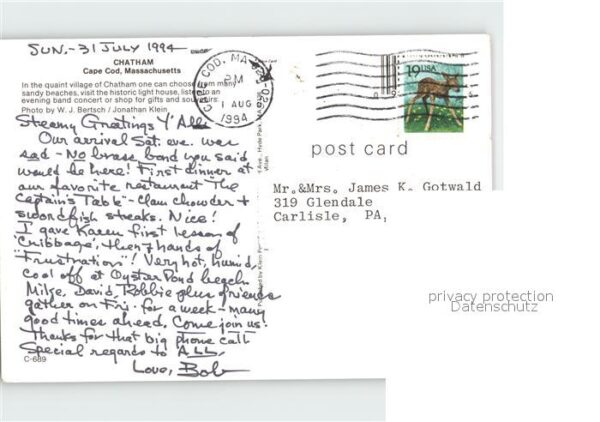 SUN.-31 JULY 1994
CHATHAM
Cape Cod, Massachusetts
In the quaint village of Chatham one can choose from many
sandy beaches, visit the historic light house, listen to
evening band concert or shop for gifts and souvenirs.
Photo by W. J. Bertsch / Jonathan Klein
Steamy Greetings Y'All
Our arrival Sat. eve. was
sad - No brass band you said
would be here! First dinner at
our favorite restaurant The
Captain's Table - Clam chowder +
swordfish steaks. Nice!
I gave Karen first lesson of
'Cribbage', then 7 hands of
"Frustrations"! Very hot, humid,
cool off at Oyster Pond beach.
Mike, David, Robbie plus friends
gather on Fri. for a week - many
good times ahead. Come join us!
Thanks for that big phone call
Special regards to ALL.
Love, Bob
C-689
CAPE COD, MA
PM
1 AUG
1994
19 USA
post card
Mr.& Mrs. James K. Gotwald
319 Glendale
Carlisle, PA,
privacy protection
Datenschutz